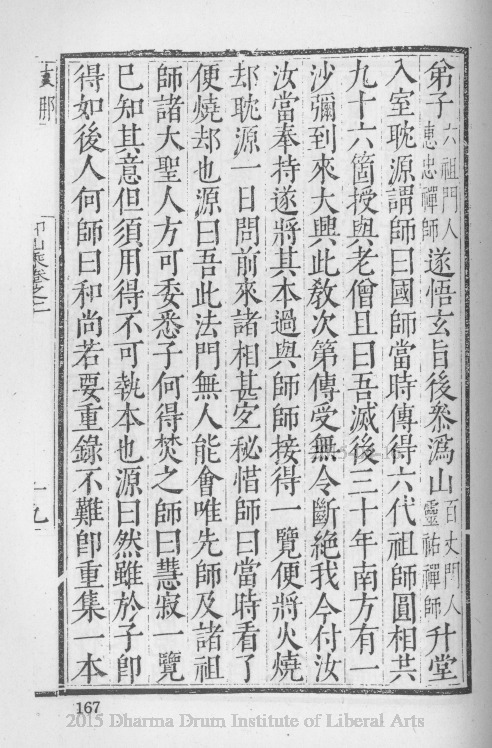 弟子六祖門人惠忠禪師遂悟玄旨後叅溈山百丈門人靈祐禪師升堂
入室耽源謂師曰國師當時傳得六代祖師圓相共
九十六箇授與老僧且曰吾滅後三十年南方有一
沙彌到來大興此敎次第傳受無令斷絕我今付汝
汝當奉持遂將其本過與師師接得一覽便將火燒
却耽源一日問前來諸相甚宜秘惜師曰當時看了
便燒却也源曰吾此法門無人能會唯先師及諸祖
師諸大聖人方可委悉子何得焚之師曰慧寂一覽
已知其意但須用得不可執本也源曰然雖於子卽
得如後人何師曰和尚若要重錄不難卽重集一本
卷之二
十九
167
2015 Dharma Drum Institute of Liberal Arts